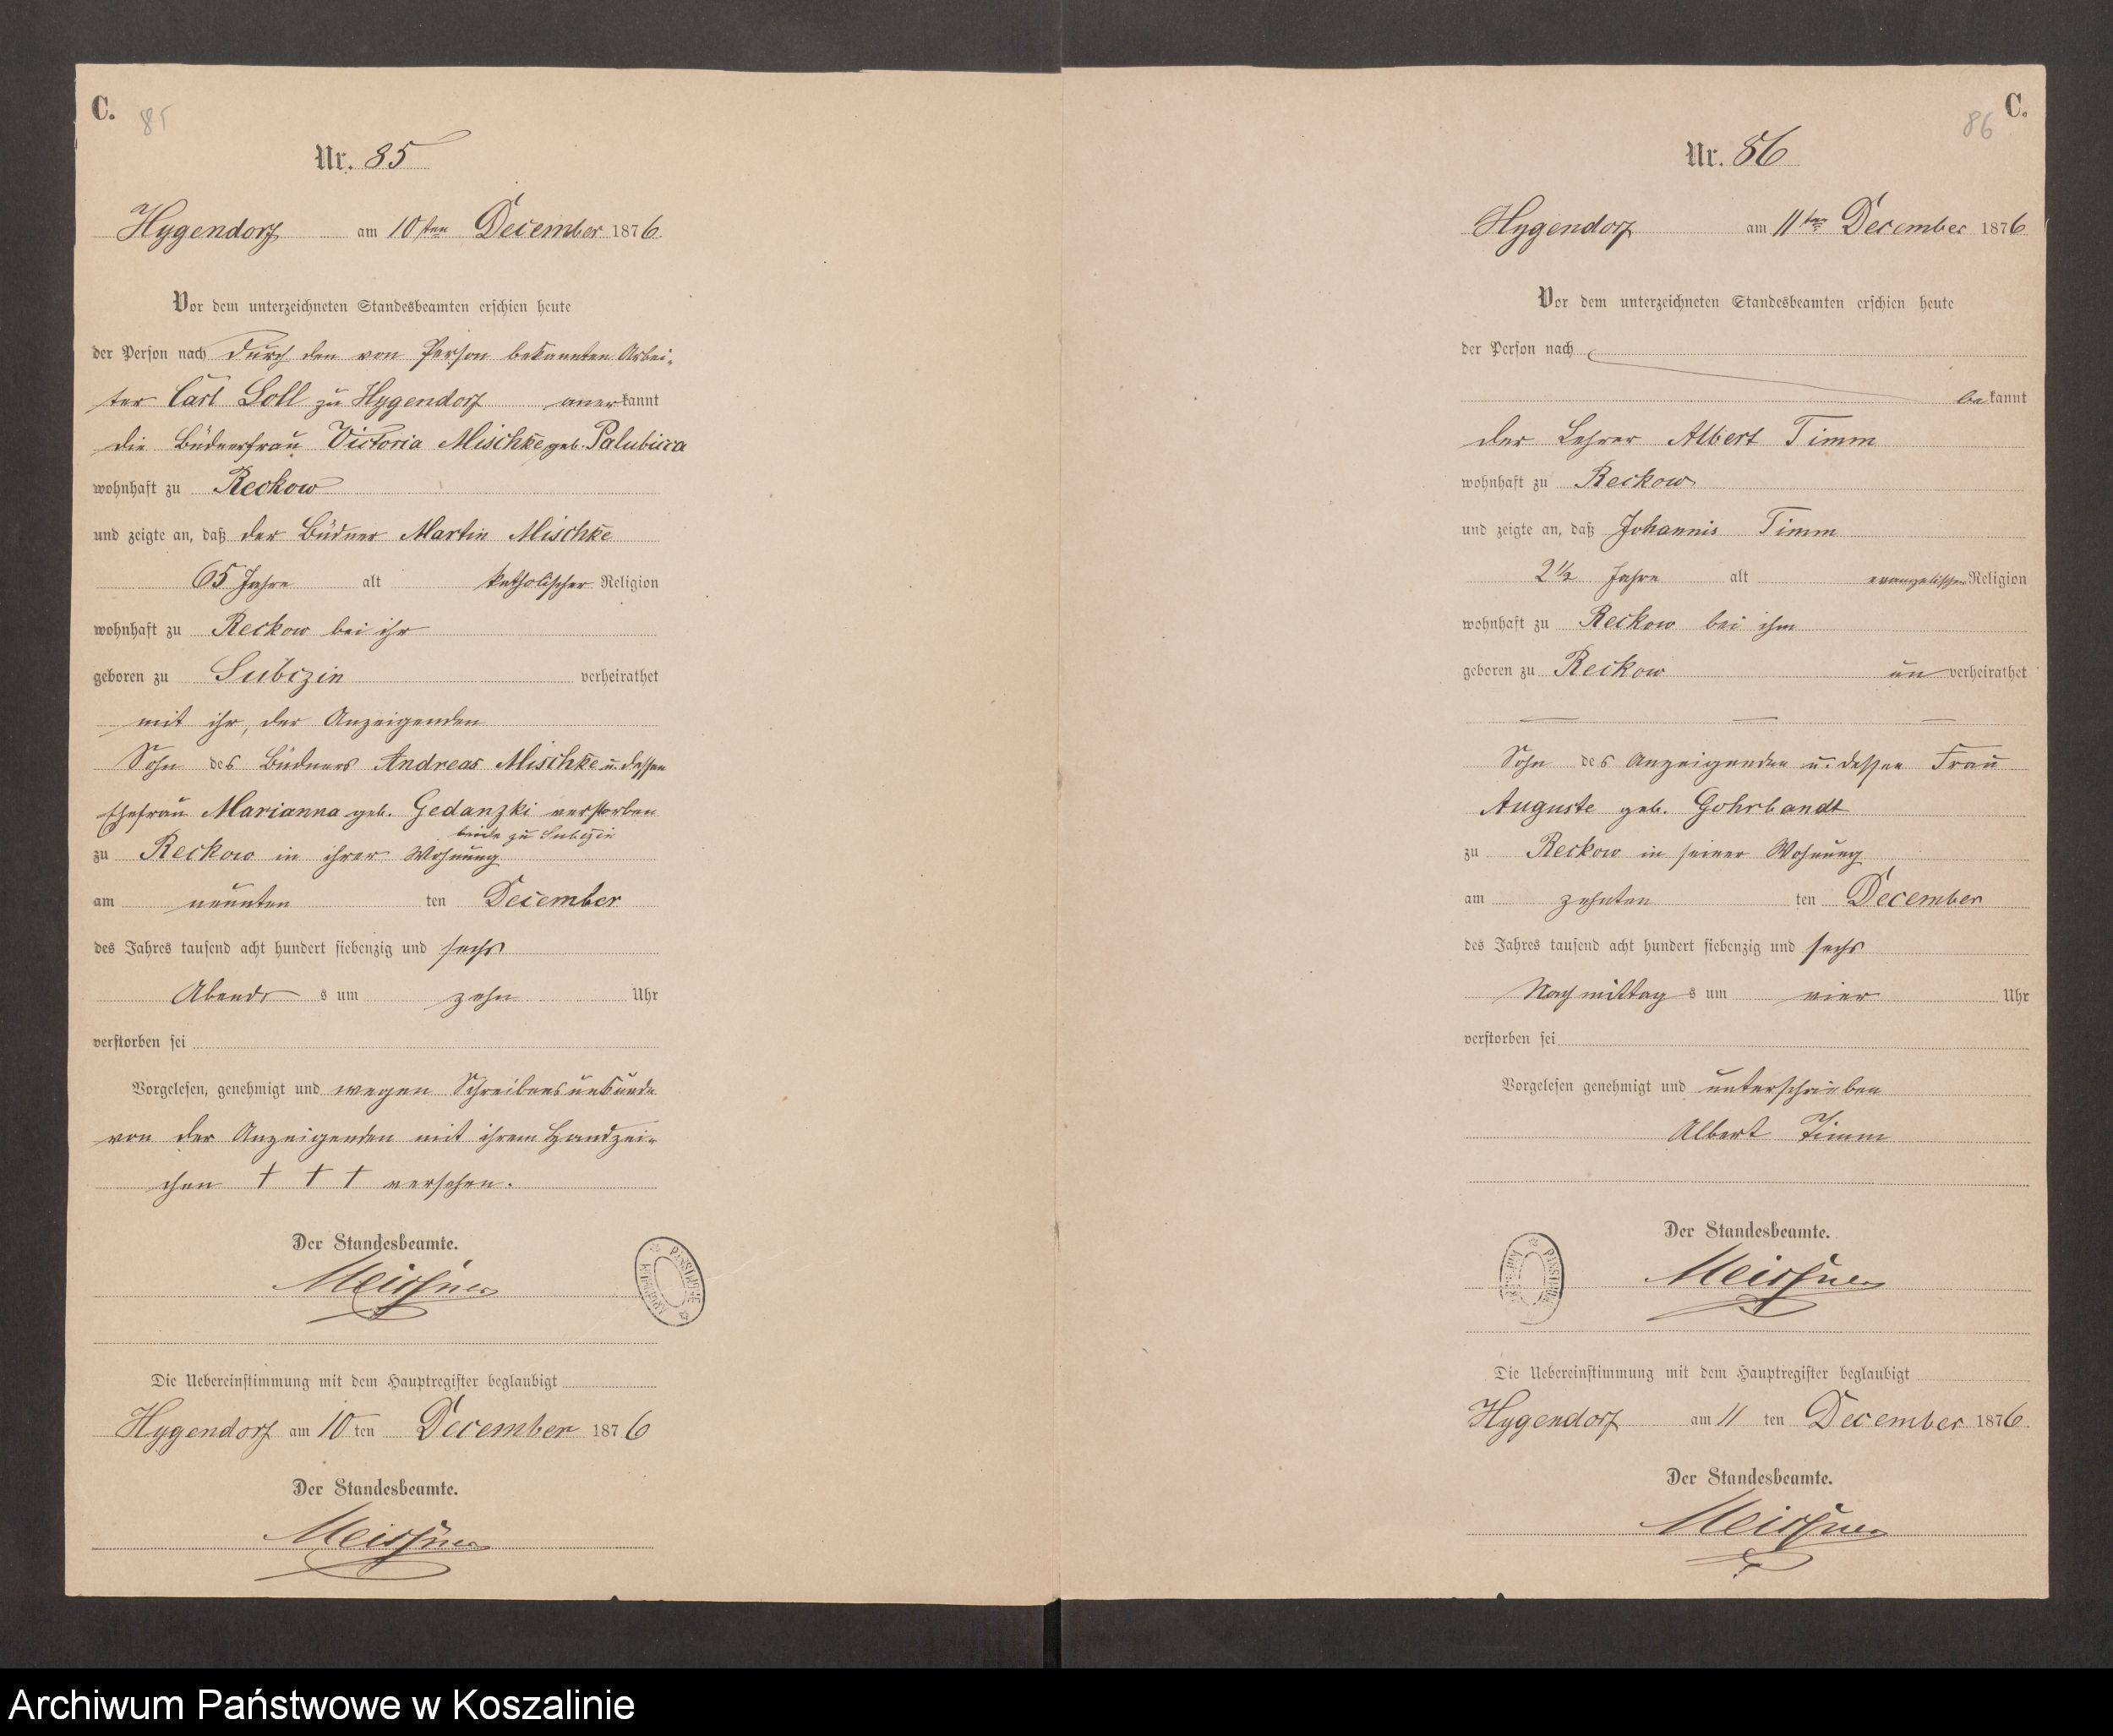 C.
85
Nr. 85
Hygendorf am 10ten December 1876.
Vor dem unterzeichneten Standesbeamten erschien heute
der Person nach durch den von Person bekannten Arbei-
ter Carl Soll zu Hygendorf anerkannt
die Büdnerfrau Victoria Mischke geb. Palubicca
wohnhaft zu Reckow
und zeigte an, daß der Büdner Martin Mischke
65 Jahre alt katholischer Religion
wohnhaft zu Reckow bei ihr
geboren zu Subczin verheirathet
mit ihr, der Anzeigenden
Sohn des Büdners Andreas Mischke u. dessen
Ehefrau Marianna geb. Gedanzki verstorben
beide zu Subczin
zu Reckow in ihrer Wohnung
am neunten ten December
des Jahres tausend acht hundert siebenzig und sechs
Abends s um zehn Uhr
verstorben sei
Vorgelesen, genehmigt und wegen Schreibensunkunde
von der Anzeigenden mit ihrem Handzei-
chen † † † versehen.
Der Standesbeamte.
Meissner
Die Uebereinstimmung mit dem Hauptregister beglaubigt
Hygendorf am 10ten December 1876
Der Standesbeamte.
Meissner
C.
86
Nr. 86
Hygendorf am 11ten December 1876
Vor dem unterzeichneten Standesbeamten erschien heute
der Person nach
bekannt
der Lehrer Albert Timm
wohnhaft zu Reckow
und zeigte an, daß Johannis Timm
2½ Jahre alt evangelischer Religion
wohnhaft zu Reckow bei ihm
geboren zu Reckow unverheirathet
Sohn des Anzeigenden u. dessen Frau
Auguste geb. Gohrbandt
zu Reckow in seiner Wohnung
am zehnten ten December
des Jahres tausend acht hundert siebenzig und sechs
Nachmittag s um vier Uhr
verstorben sei
Vorgelesen genehmigt und unterschrieben
Albert Timm
Der Standesbeamte.
Meissner
Die Uebereinstimmung mit dem Hauptregister beglaubigt
Hygendorf am 11 ten December 1876.
Der Standesbeamte.
Meissner
Archiwum Państwowe w Koszalinie